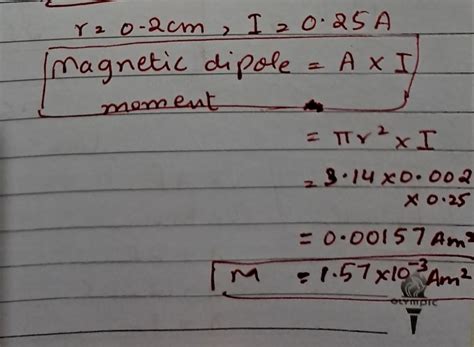 r = 0.2cm, I = 0.25A
Magnetic dipole = A × I
moment
= πr² × I
= 3.14 × 0.002
× 0.25
= 0.00157 Am²
M = 1.57 × 10⁻³ Am²
OLYMPIC